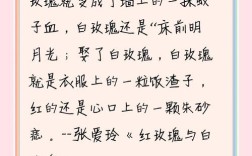 玫瑰就变成了墙上的一抹蚊
子血，白玫瑰还是“床前明
月光；娶了白玫瑰，白玫瑰
就是衣服上的一粒饭渣子，
红的还是心口上的一颗朱砂
痣。--张爱玲《红玫瑰与白